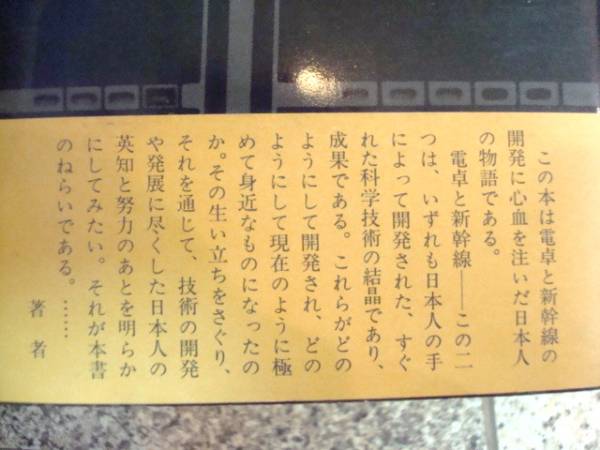 この本は電卓と新幹線の
開発に心血を注いだ日本人
の物語である。
電卓と新幹線――この二
つは、いずれも日本人の手
によって開発された、すぐ
れた科学技術の結晶であり、
成果である。これらがどの
ようにして開発され、どの
ようにして現在のように極
めて身近なものになったの
か。その生い立ちをさぐり、
それを通じて、技術の開発
や発展に尽くした日本人の
英知と努力のあとを明らか
にしてみたい。それが本書
のねらいである。……
著者